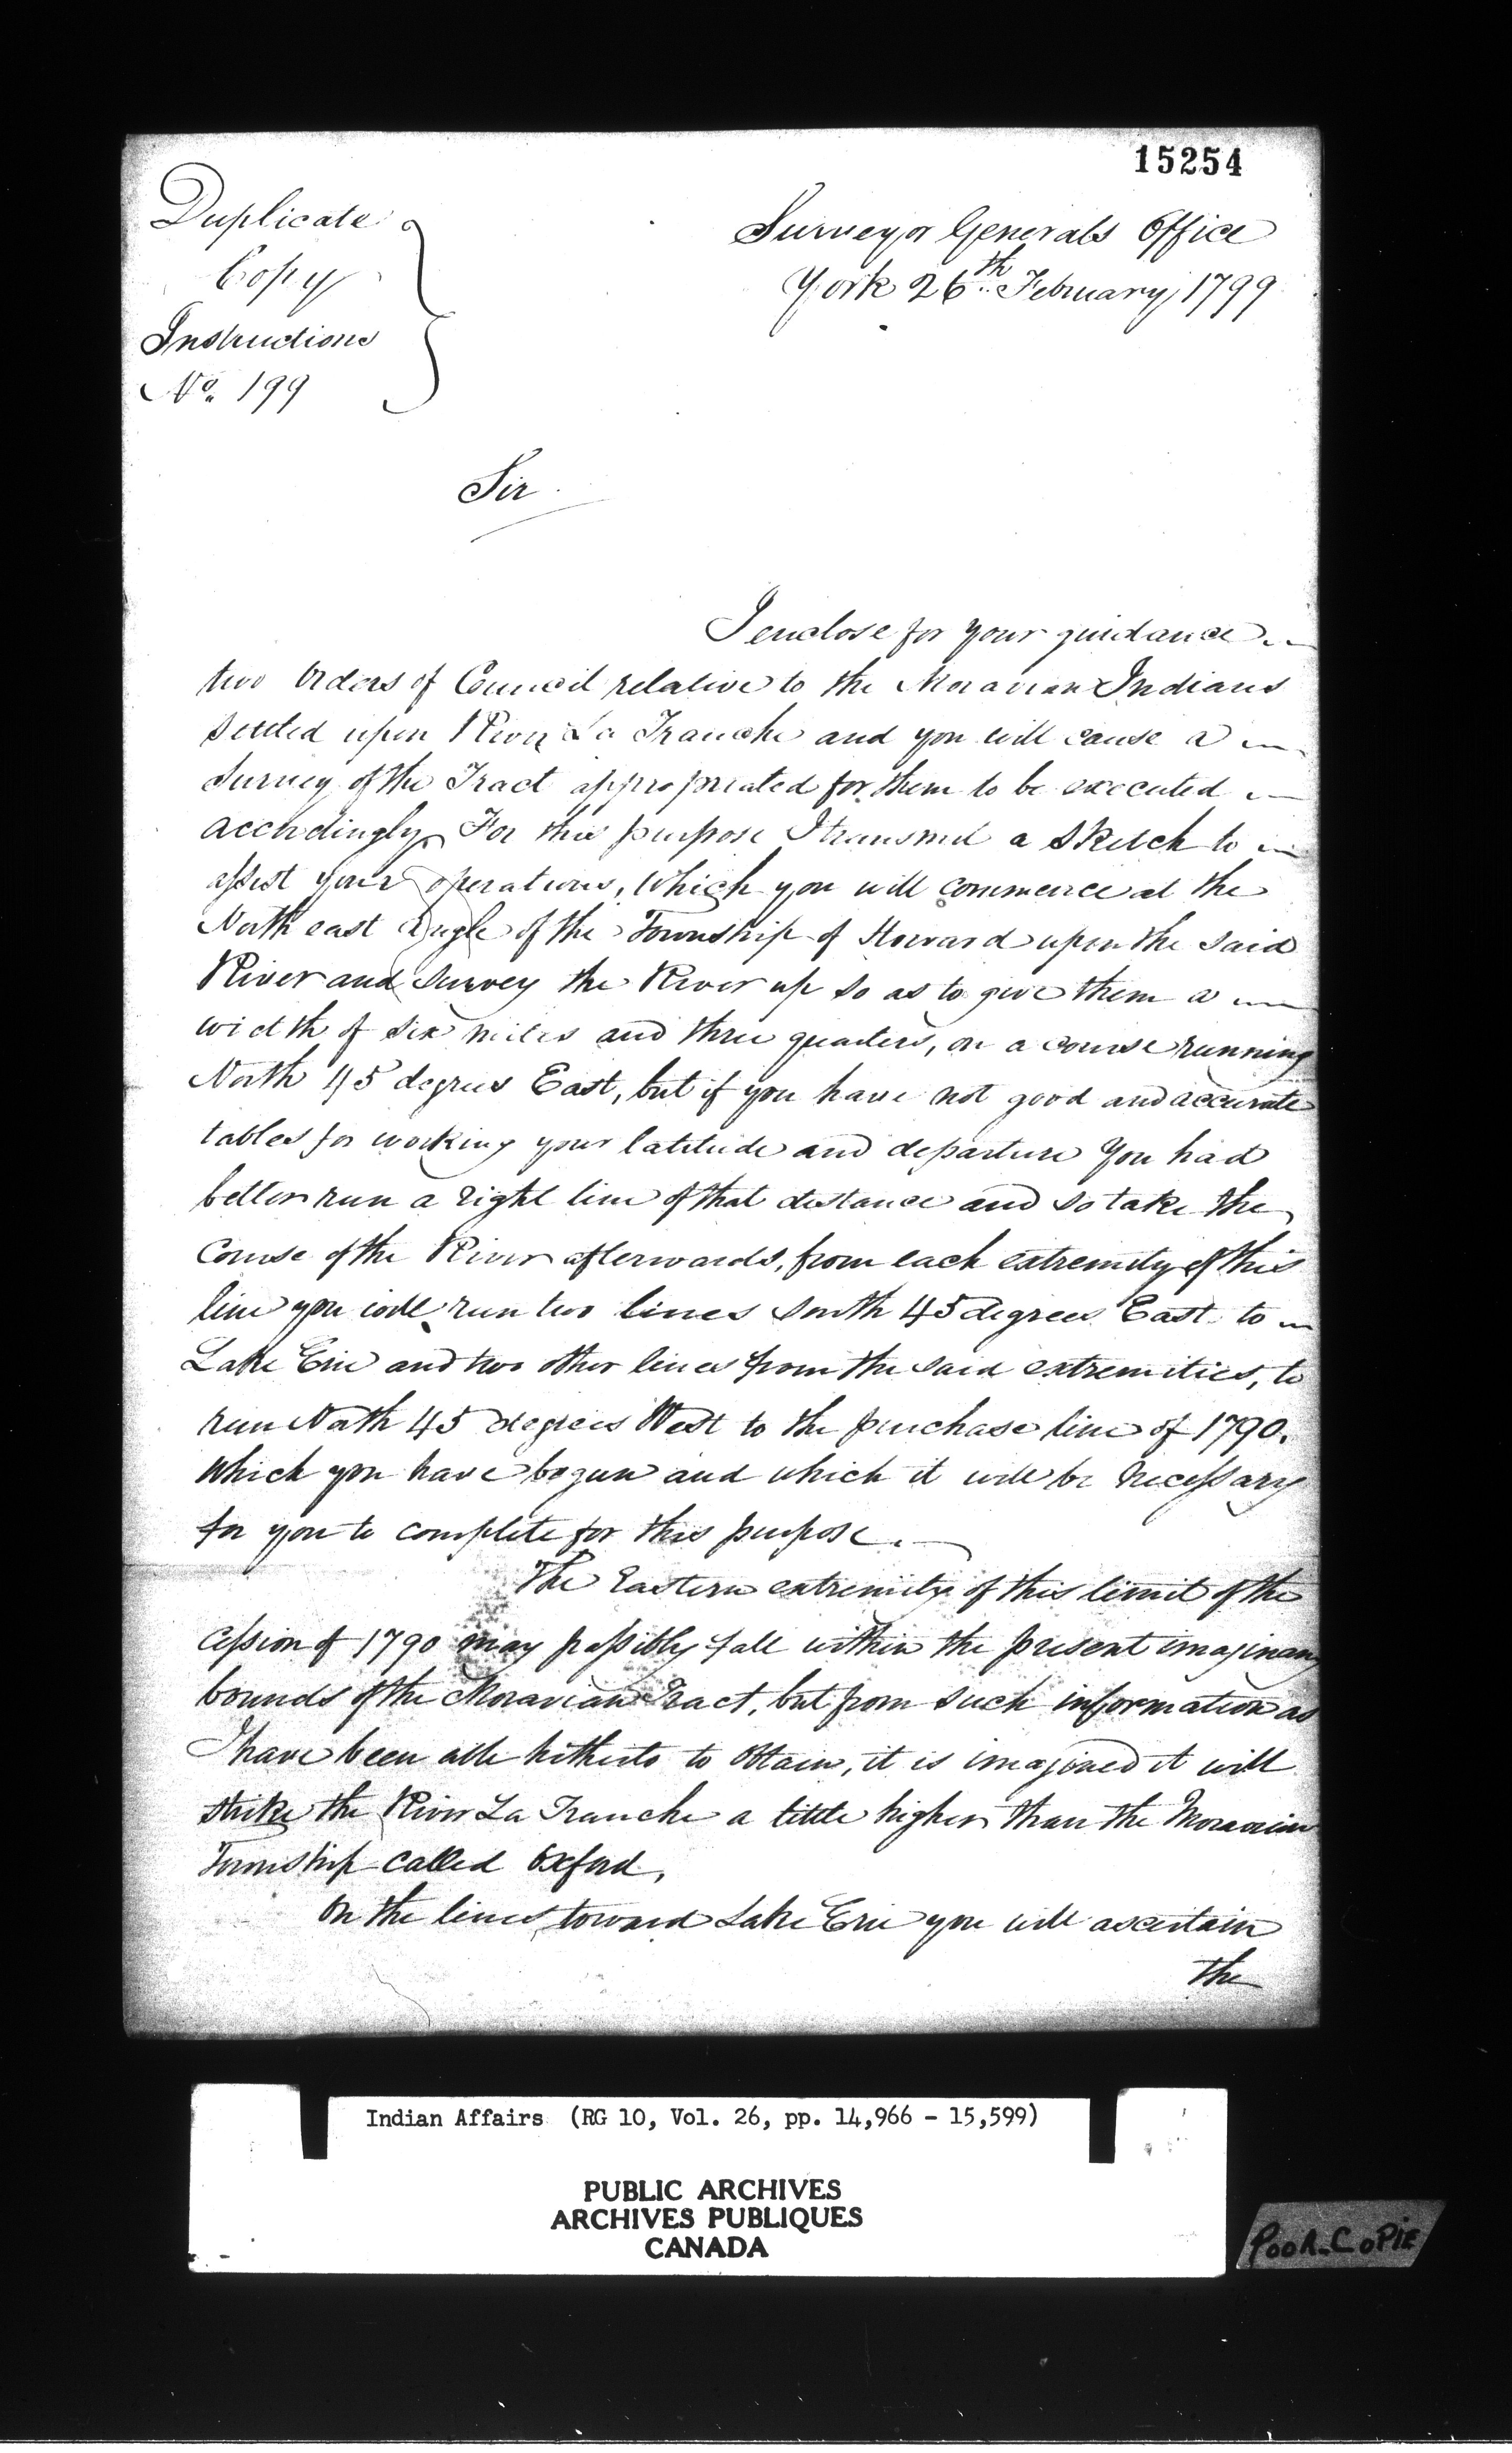 15254
Duplicate
Copy
Instructions
No. 199
Surveyor Generals Office
York 26th February 1799
Sir
I enclose for your guidance
two Orders of Council relative to the Moravian Indians
settled upon River La Tranche and you will cause a
Survey of the Tract appropriated for them to be executed
accordingly. For this purpose I transmit a Sketch to
assist your operations, which you will commence at the
North east Angle of the Township of Howard upon the said
River and survey the River up so as to give them a
width of six miles and three quarters, on a course running
North 45 degrees East, but if you have not good and accurate
tables for working your latitude and departure You had
better run a right line of that distance and so take the
Course of the River afterwards, from each extremity of this
line you will run two lines South 45 degrees East to
Lake Erie and two other lines from the said extremities, to
run North 45 degrees West to the purchase line of 1790.
which you have begun and which it will be necessary
for you to complete for this purpose.
The Eastern extremity of this limit of the
cession of 1790 may possibly fall within the present imaginary
bounds of the Moravian Tract, but from such information as
I have been able hitherto to obtain, it is imagined it will
strike the River La Tranche a little higher than the Moravian
Township called Oxford,
On the lines toward Lake Erie you will ascertain
the
Indian Affairs (RG 10, Vol. 26, pp. 14,966 - 15,599)
PUBLIC ARCHIVES
ARCHIVES PUBLIQUES
CANADA
POOR COPIE